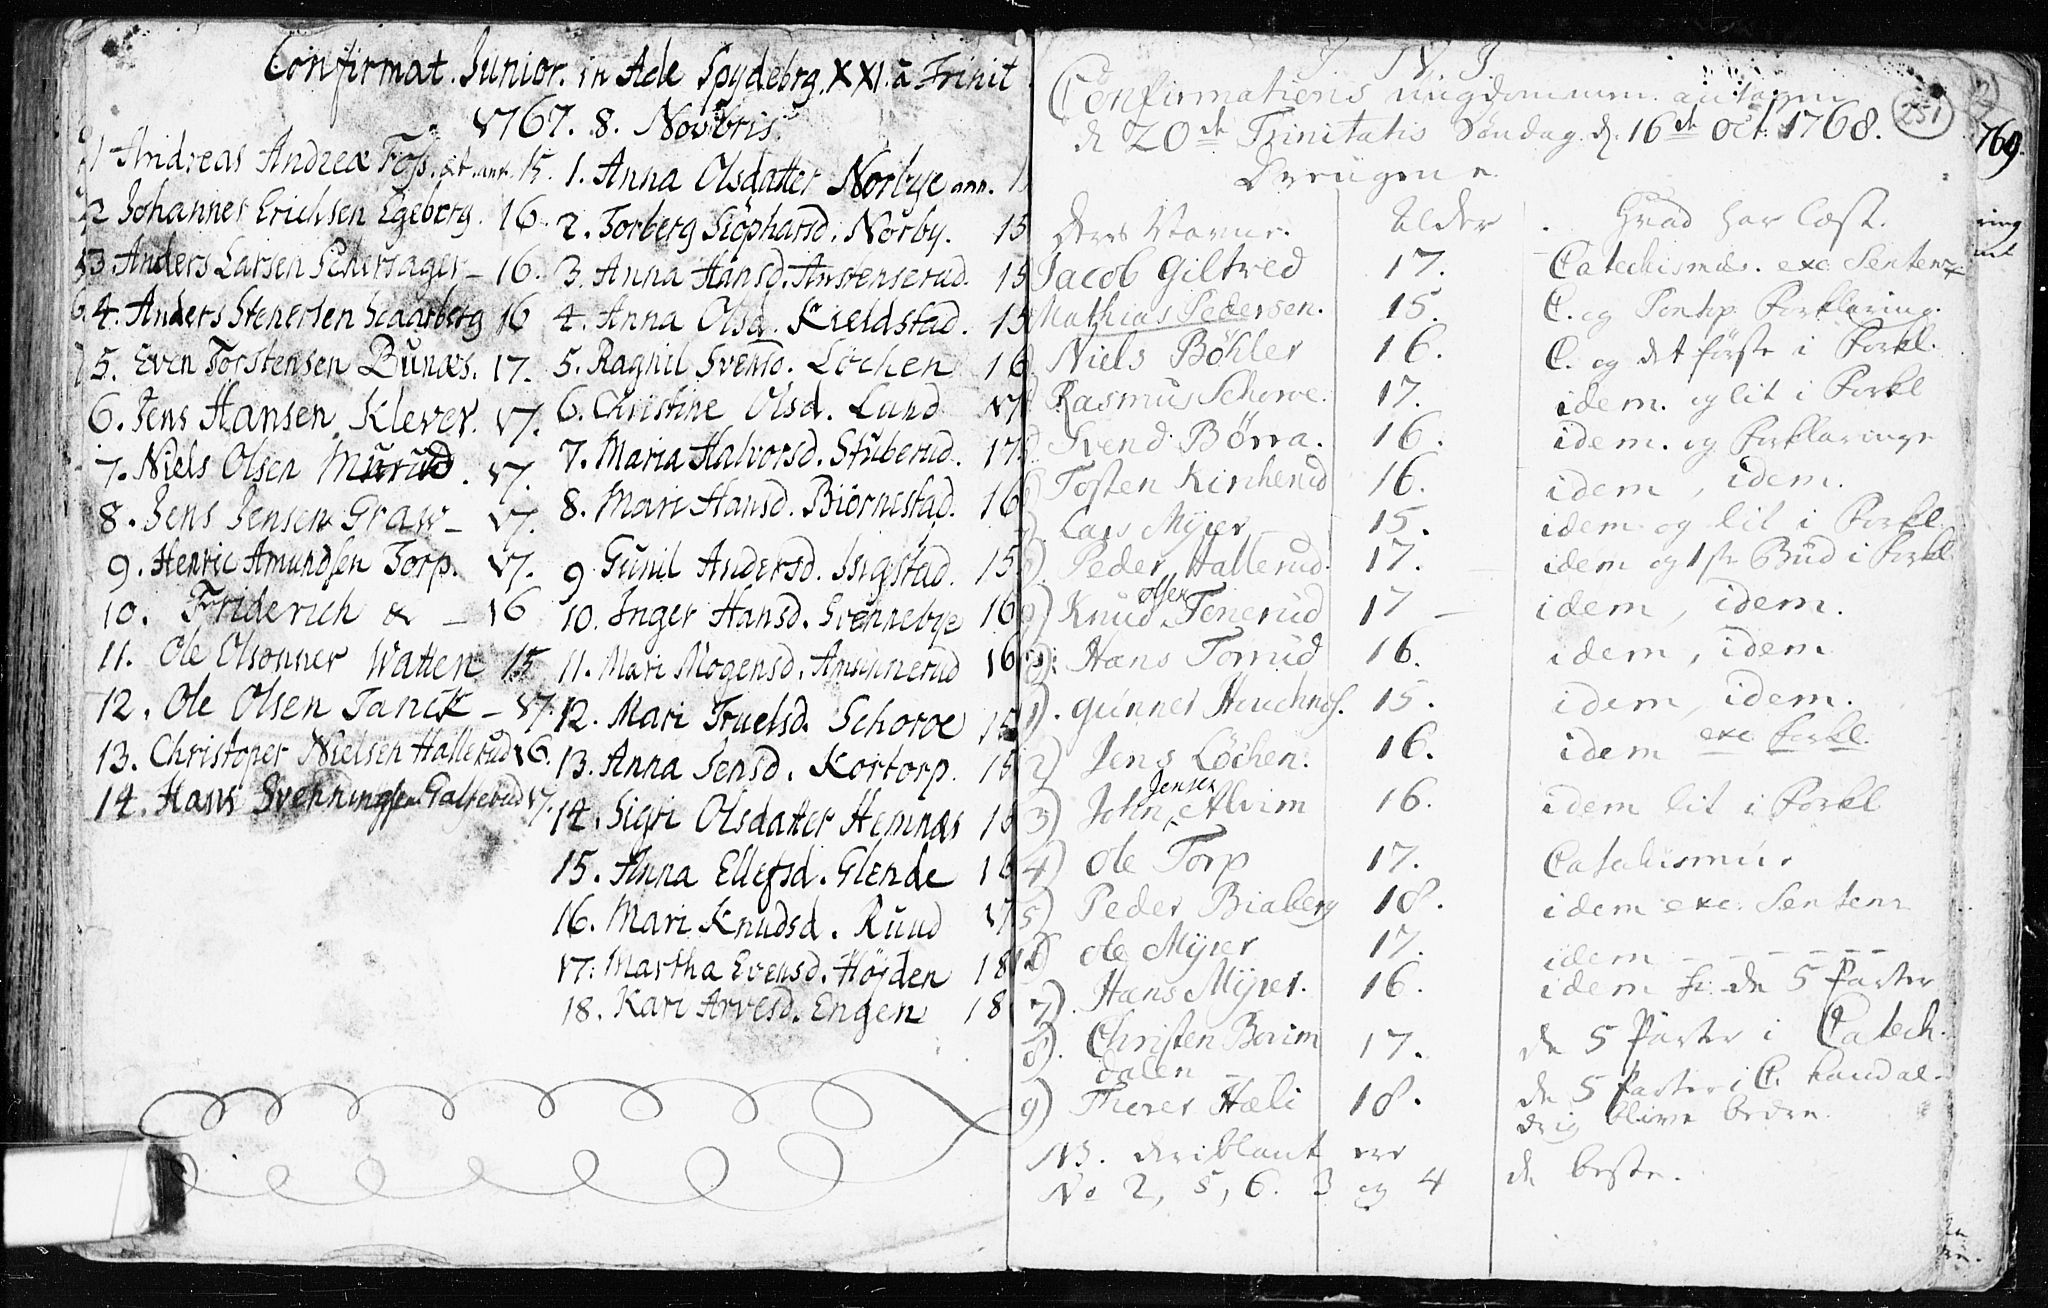 Confirmat. Junior. in Æde Spydebrg. XXI. a Trinit
1767. 8. Novbris.
1 Andreas Andreæ Foss. æt. ann. 15.
2 Johannes Erichsen Egeberg. 16.
3. Anders Larsen Schersager - 16.
4. Anders Stenersen Scaarberg 16
5. Even Torstensen Bunæs. 17.
6. Jens Hansen Klever. 17.
7. Niels Olsen Murud. 17.
8. Jens Jensen Graw - 17.
9. Henric Amundsen Torp. 17.
10. Friderich & - 16
11. Ole Olsonner Watten 15
12. Ole Olsen Tanck - 17.
13. Christoper Nielsen Hallerud 16.
14. Hans Svenningsen Galterud 17.
1. Anna Olsdatter Norbye ann. 1
2. Torberg Siöpharsd. Nörby. 15
3. Anna Hansd. Anstenserud. 15
4. Anna Olsd. Kieldstad. 15
5. Ragnil Svensd. Löchen 16
6. Christine Olsd. Lund 17
7. Maria Halvorsd. Stuberud. 17
8. Mari Hansd. Biörnestad. 16
9 Gunil Andersd. Isigstad. 15
10. Inger Hansd. Svennebye 16
11. Mari Mogensd. Amunnerud 16
12. Mari Truelsd. Schoroe 15
13. Anna Jensd. Kortorp. 15
14. Sigri Olsdatter Hemnæs 16
15. Anna Ellefsd. Glende 16
16. Mari Knudsd. Ruud 17
17. Martha Evensd. Höjden 18
18. Kari Arvesd. Engen 18
J N J
251
Confirmations ungdommen antagen
d. 20de Trinitatis Søndag d. 16de Oct: 1768.
Drengene
Deres Navne. Alder Hvad har læst.
Jacob Giltved 17. Catechismus. exc. Sentenz
Mathias Pedersen. 15. C. og Pontop Forklaring.
Niels Böhler 16. C. og det förste i Forkl.
Rasmus Schoroe. 17. idem. og lit i Forkl
Svend Börra. 16. idem. og Forklaringe
Tosten Kirkerud 16. idem, idem.
Lars Myrer 15. idem og lit i Forkl
Peder Hallerud. 17. idem og 1ste Bud i Forkl
9) Knud Olsen Tenerud 17 - idem, idem.
Hans Torrud 16. idem, idem
1). Gunner 15. idem, idem.
2) Jens Löchen. 16. idem exc Forkl.
3) John Jensen Alvim 16. idem lit i Forkl
4) Ole Torp 17. Catechismus
5) Peder Biaberg 18. idem exc. Sentens
6) Ole Myrer 17. idem - - - - -
7). Hans Myrer. 16. idem de 5 Parter
8). Christen Borim 17. de 5 Parter i Catech.
dalen
9) Hæli 18. de 5 Parter i C. kand al-
drig blive bedre.
NB. deriblant ere
No 2, 5, 6. 3 og 4 de beste.
769.